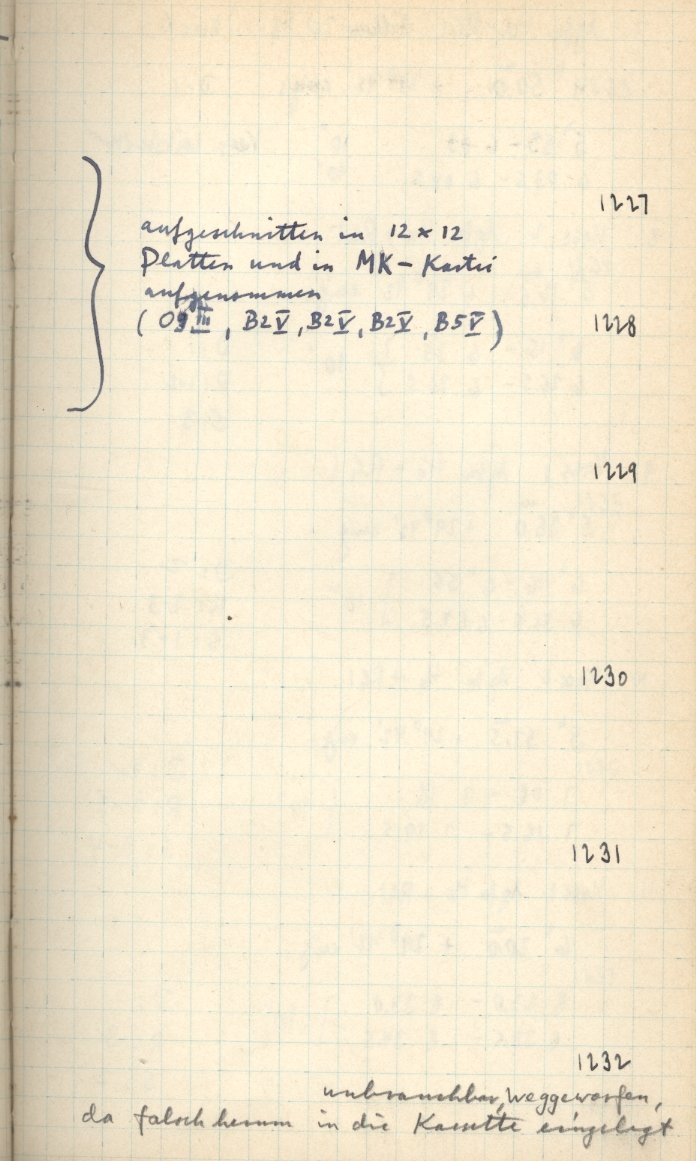 1227
aufgeschnitten in 12 x 12
Platten und in MK-Kartei
aufgenommen
(O9 III, B2 V, B2 V, B2 V, B5 V)
1228
1229
1230
1231
1232
unbrauchbar, weggeworfen,
da falsch herum in die Kassette eingelegt